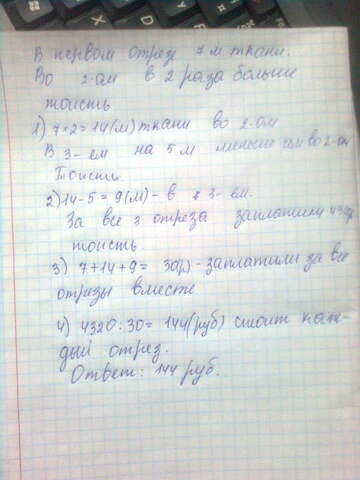 В первом отрез 7 м. ткани.
Во 2-ом в 2 раза больше
тоисть
1) 7×2=14(м) ткани во 2-ом
В 3-ем на 5 м меньше чем во 2-ом
Тоисть
2) 14-5=9(м)-в 3-ем.
За все 3 отреза заплатили
тоисть
3) 7+14+9= 30(р)-заплатили за все
отрезы вместе
4) 4320:30=144(руб) стоит каж-
дый отрез.
Ответ: 144 руб.